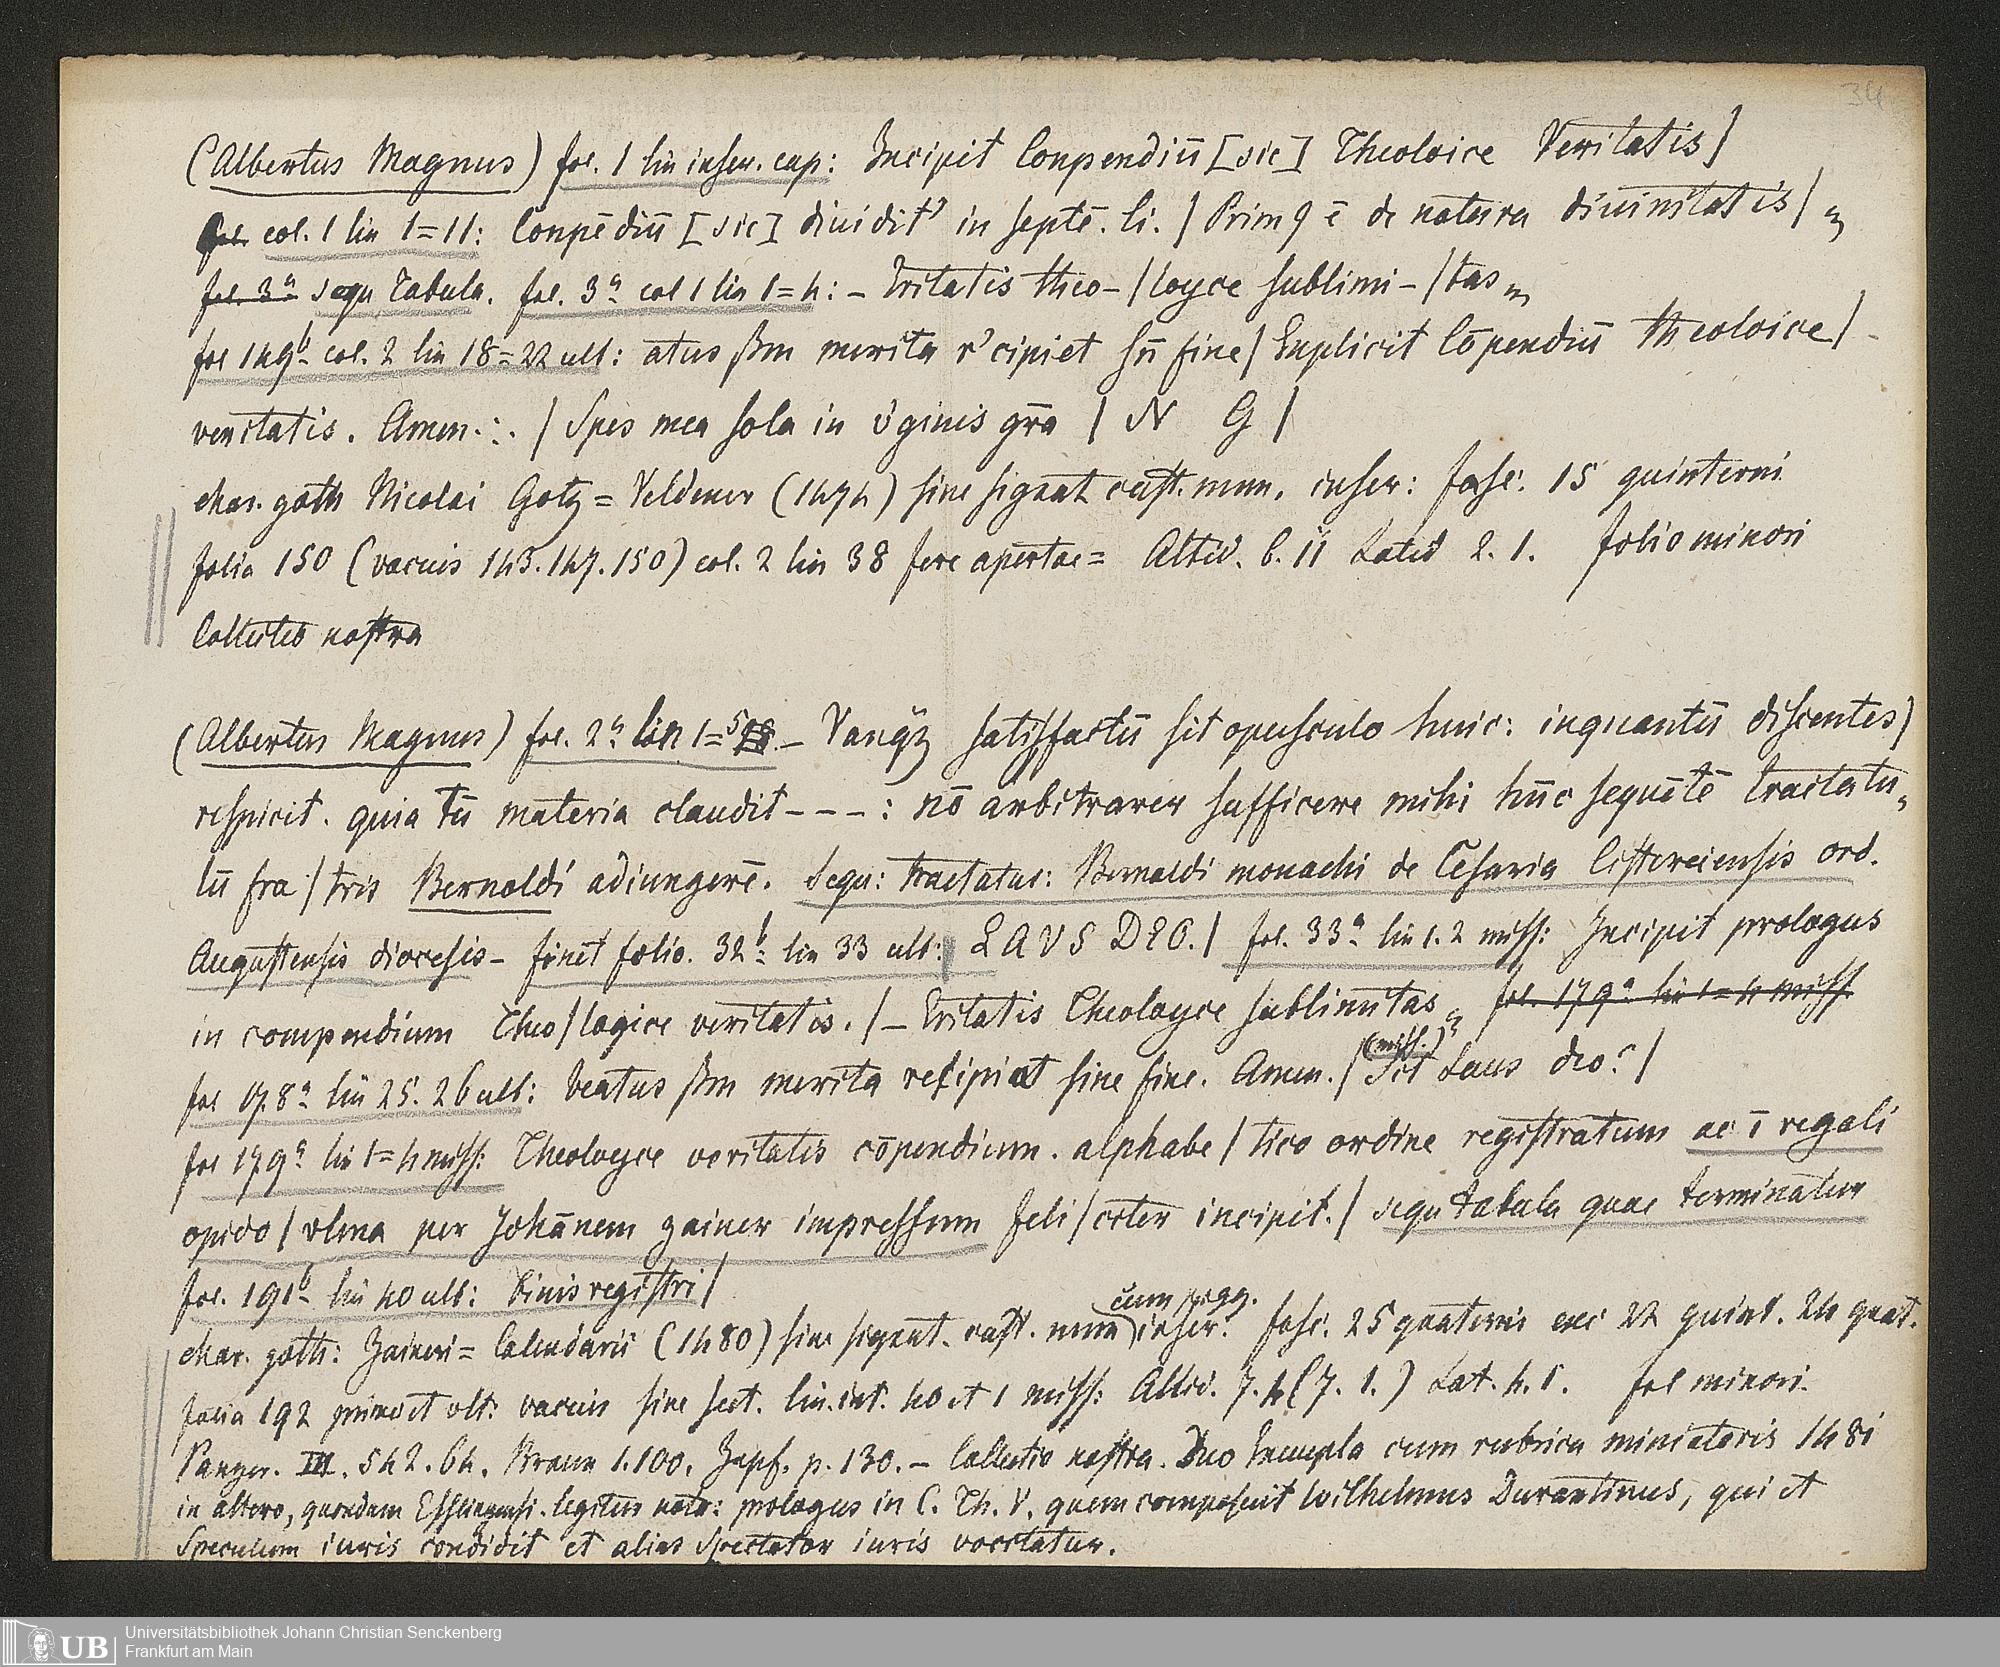 34
(Albertus Magnus) fol. 1 lin inser. cap: Incipit Conpendiū [sic] Theoloice Veritatis]
fol. col. 1 lin 1=11: Conpēdiū [sic] diuidit' in septē. li. | Prim9 ē de natura diuinitatis |
fol. 3a sequ tabula. fol. 3a col 1 lin 1=4: – Eritatis theo– | loyce sublimi– | tas
fol 149b col. 2 lin 18=22 ult: atus ßm merita r'cipiet sn̄ fine | Explicit Cōpendiū theoloice |
veritatis. Amen.:. | Spes mea sola in v̄ginis gr̄a | N G |
char. goth Nicolai Gotz = Veldener (1474) sine signat cust. num. inser: fasc. 15 quinterni
folia 150 (vacuis 143. 147. 150) col. 2 lin 38 fere apertae = Altid. 6. 11 Latid 2. 1. folio minori
Collectio nostra
(Albertus Magnus) fol. 2a lin 1=5 – Vanq̄z satisfactū sit opusculo huic: inquantū discentes |
respicit. quia tū materia claudit – – – : nō arbitrarer sufficere mihi hūc sequētē tractatu
lū fra | tris Bernoldi adiungerē. Sequ: tractatus: Bernaldi monachi de Cesaria Cisterciensis ord.
Augustensis diocesis – finit folio. 32b lin 33 ult: LAVS DEO. | fol. 33a lin 1. 2 miss: Incipit prologus
in compendium Theo | logice veritatis. | – Eritatis Theologyce sublimitas fol. 179a lin 1=4 miss.
fol 178a lin 25. 26 ult: beatus ßm merita recipiat sine fine. Amen. | (miss.) Sit Laus deo. |
fol 179a lin 1=4 miss: Theologyce veritatis cōpendium. alphabe | tico ordine registratum ac ī regali
opido | vlma per Johānem zainer impressum feli | citer incipit. | sequ tabula quae terminatur
fol. 191b lin 40 ult: finis registri |
char. goth: Zaineri = Calendarii (1480) sine signat. cust. num (cum sigg. inser: fasc. 25 quaterni exc 22 quint. 24 quat.
folia 192 primo et ult: vacuis sine sect. lin. int. 40 et 1 miss: Altid. 7. 4 (7. 1.) Lat. 4. 1. fol minori.
Panzer. III. 542. 64. Braun 1. 100. Zapf. p. 130. – Collectio nostra. Duo Exempla cum rubrica miniatoris 1481
in altero, quondam Esslingensi. legitur nota: prologus in C. Th. V. quem composuit Wilhelmus Durantinus, qui et
Speculum iuris condidit et alias Spectator iuris vocitatur.
UB
Universitätsbibliothek Johann Christian Senckenberg
Frankfurt am Main